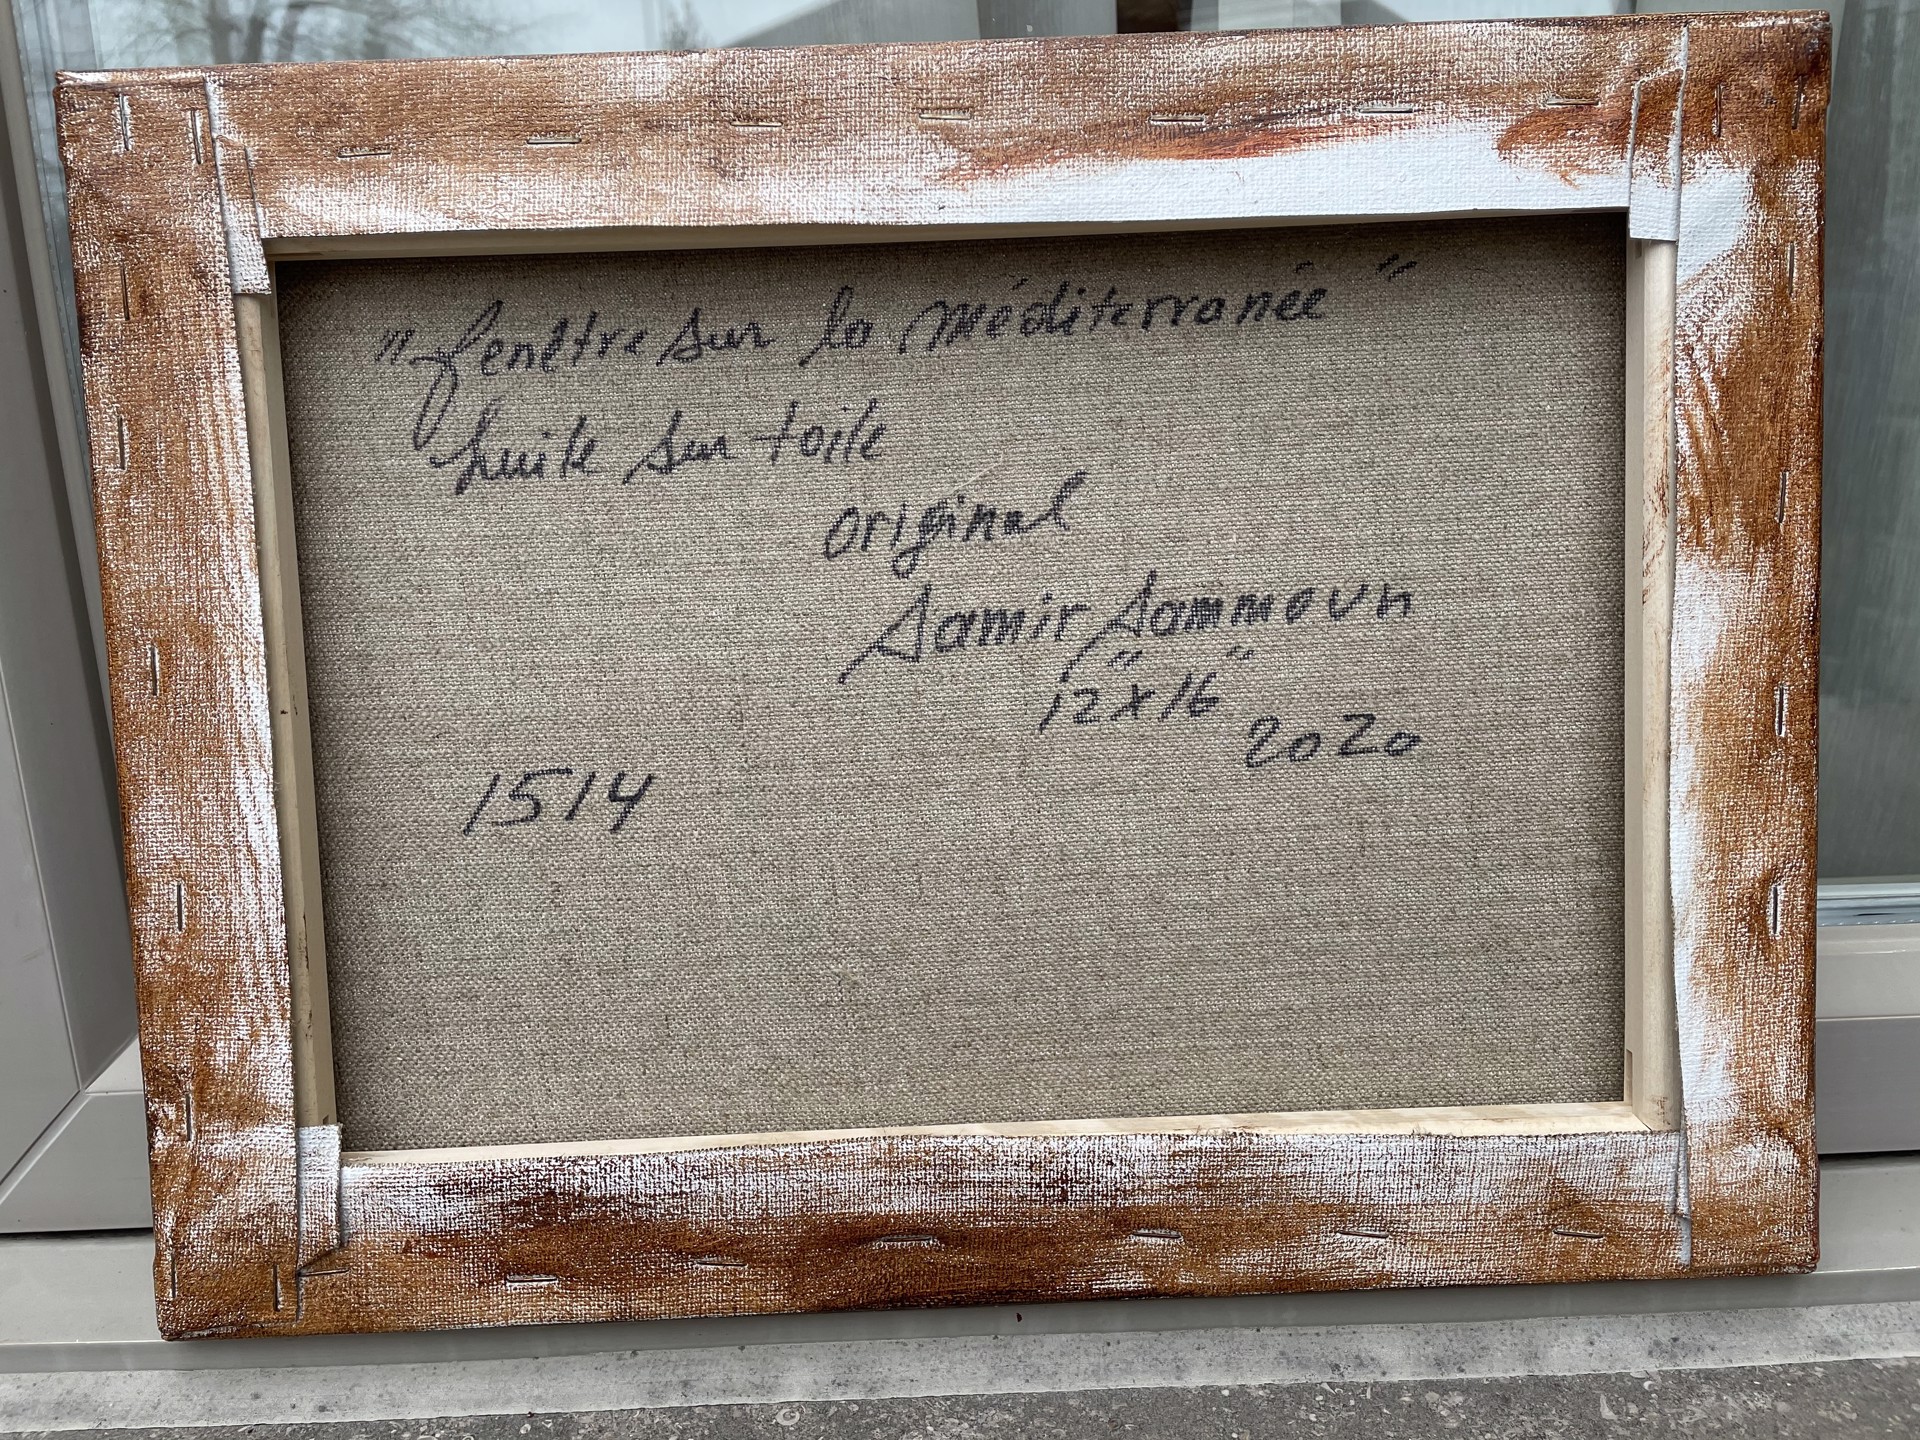 "fenêtre sur la méditerranée"
huile sur toile
original
Samir Sammoun
12" x 16"
2020
1514